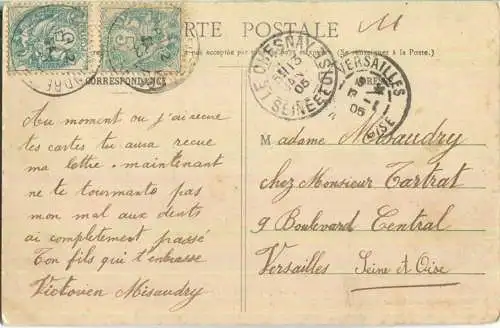 CARTE POSTALE
11
CORRESPONDANCE
LE CHESNAY
13
05
SEINE-ET-OISE
VERSAILLES
05
OISE
5
5
Au moment ou j'ai recue
tes cartes tu aura recue
ma lettre. maintenant
ne te tourmante pas
mon mal aux dents
ai completement passé
Ton fils qui t'embrasse
Victorien Misaudry
Madame Misaudry
chez Monsieur Tartrat
9 Boulevard Central
Versailles Seine et Oise